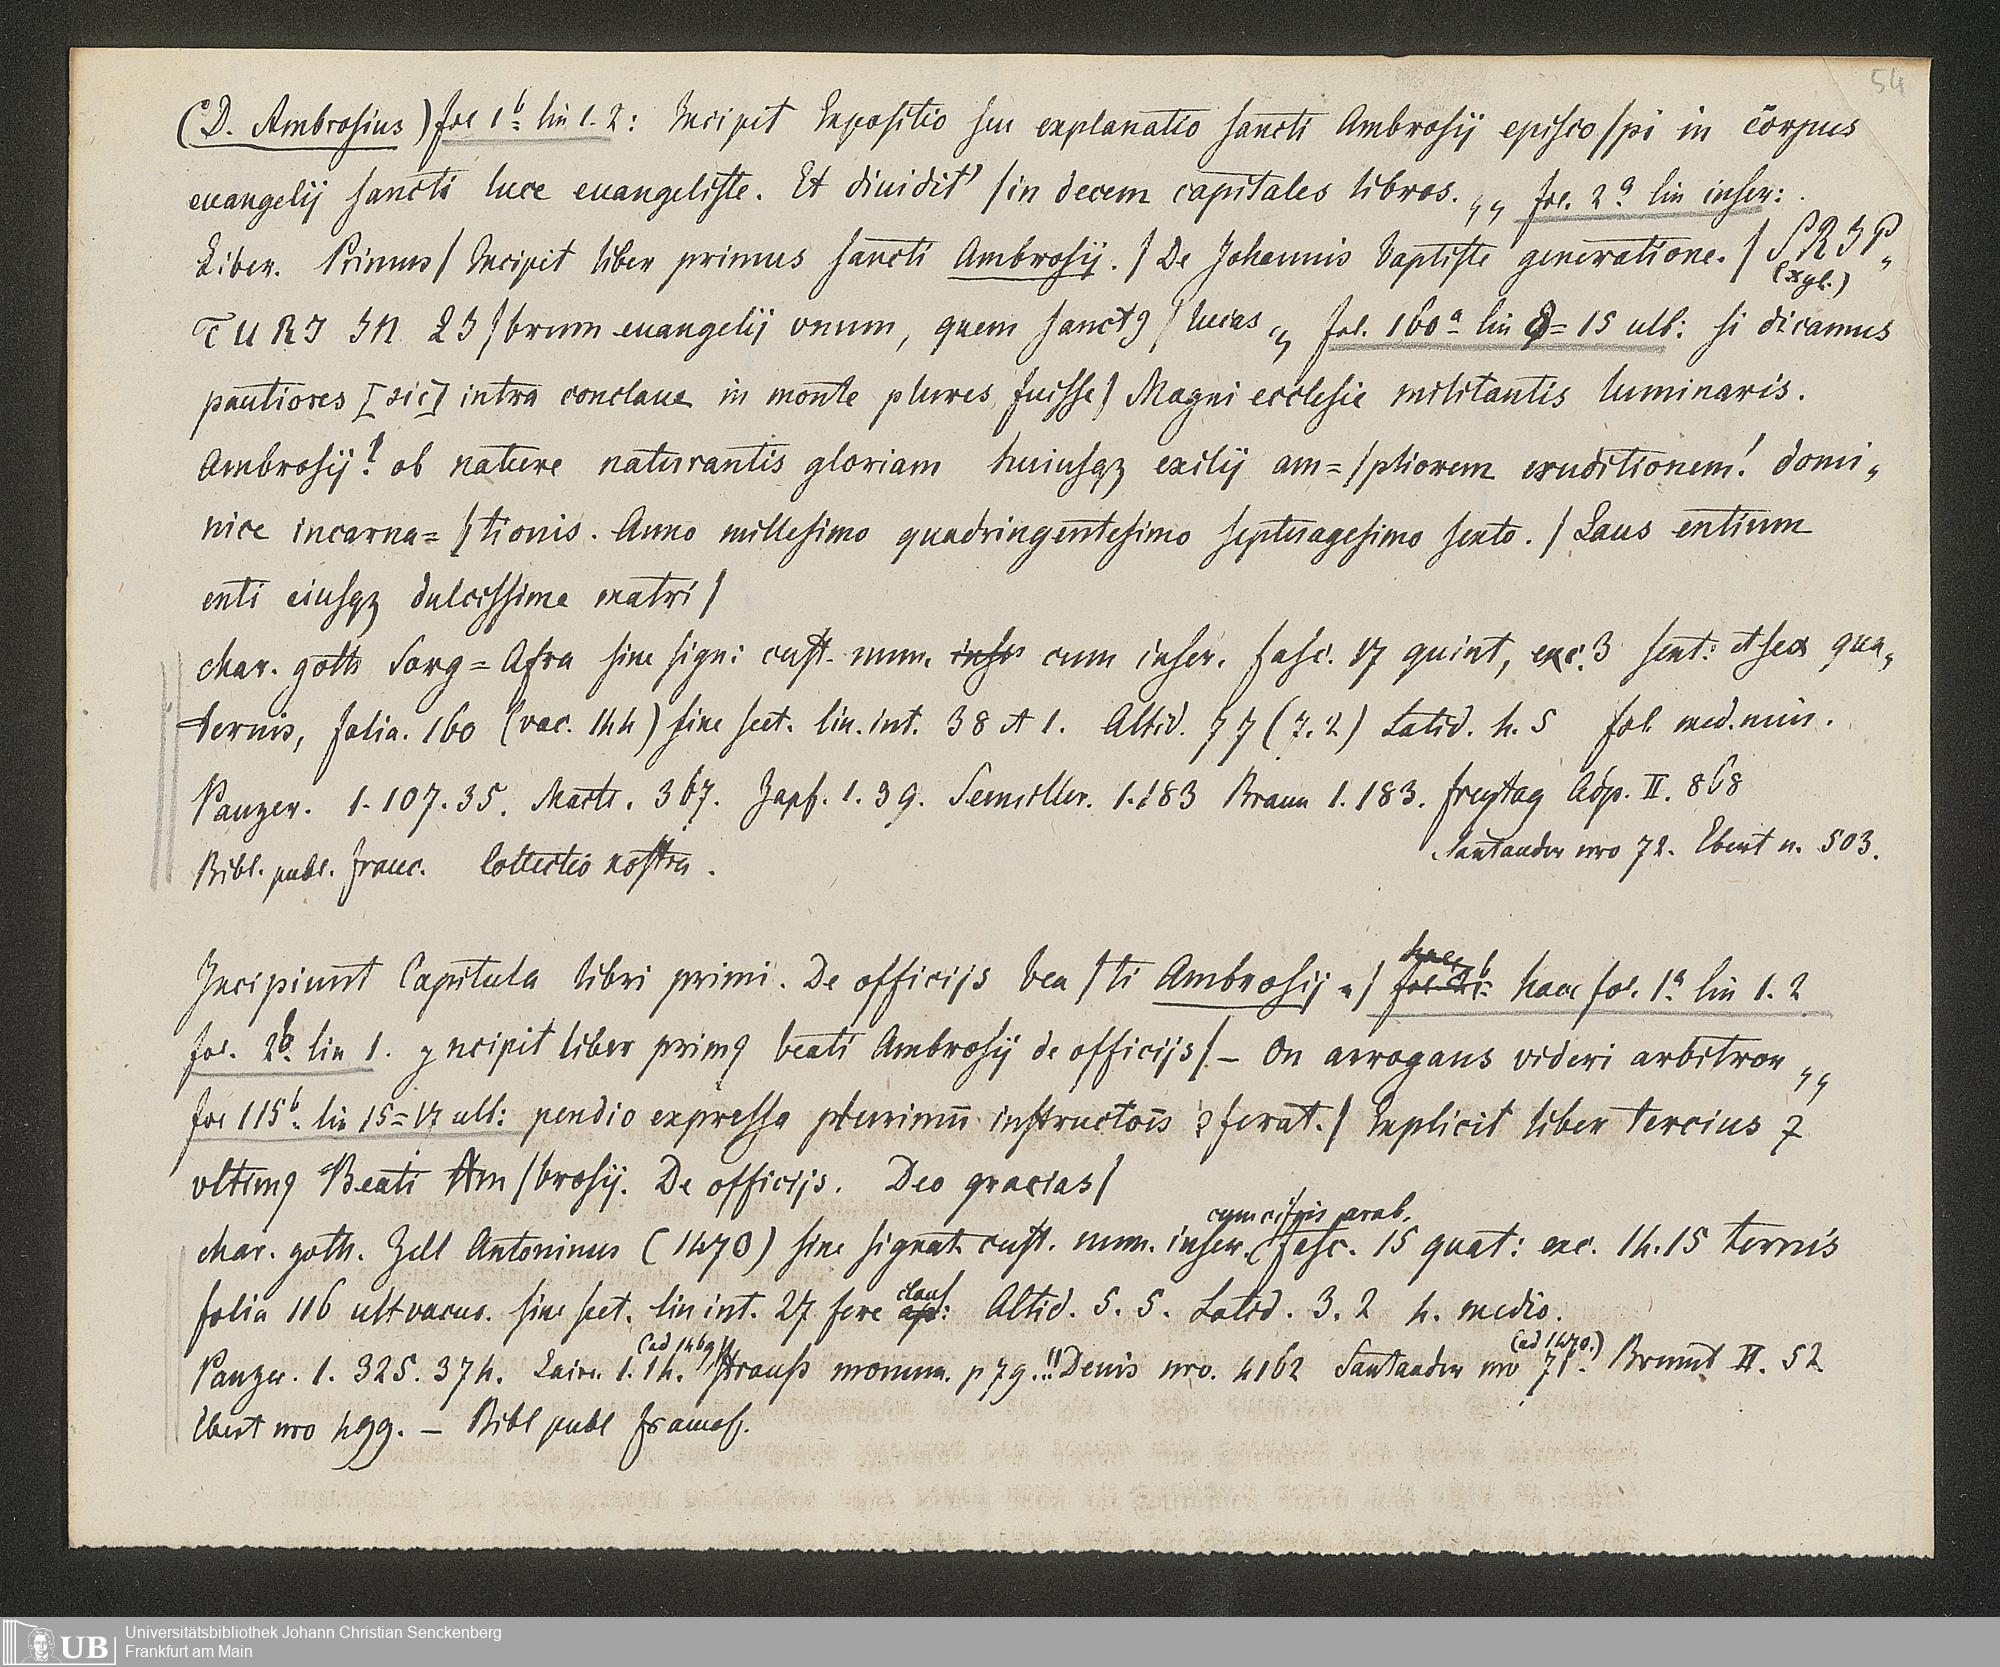 54
(D. Ambrosius) fol 1b lin 1. 2: Incipit Expositio seu explanatio sancti Ambrosij episco/pi in cōrpus
euangelij sancti luce euangeliste. Et diuidit' /in decem capitales libros. „ fol. 2a lin inser:
Liber. Primus/ Incipit liber primus sancti Ambrosij. / De Johannis baptiste generatione. / SRIP„
(xyl.)
TURI IN LI/brum euangelij vnum, quem sanct9 / lucas „ fol. 160a lin = 15 ult: si dicamus
pautiores [sic] intra conclaue in monte plures fuisse/ Magni ecclesie militantis luminaris.
Ambrosij! ob nature naturantis gloriam huiusqz exilij am=/pliorem eruditionem! domi„
nice incarna=/tionis. Anno millesimo quadringentesimo septuagesimo sexto. / Laus entium
enti eiusqz dulcissime matri/
char. goth Sorg=Afra sine sign: cust. num. cum inser. fasc. 17 quint, exc. 3 sext: et sex qua„
ternis, folia. 160 (vac. 144) sine sect. lin. int. 38 et 1. Altid. 7 7 (7.2) Latid. 4. 5 fol. med. min.
Panzer. 1. 107. 35. Maitt. 367. Zapf. 1. 39. Semiller. 1. 183 Braun 1. 183. Freytag Adp. II. 868
Santander nro 72. Ebert n. 503.
Bibl. publ. Franc. Collectio nostra.
Incipiunt Capitula libri primi. De officijs bea /ti Ambrosij „/ haec fol. 1a lin 1. 2
fol. 2b lin 1. yncipit liber prim9 beati Ambrosij de officijs/ – On arrogans videri arbitror „
fol 115b lin 15=17 ult: pendio expressa plurimū instructōis ꝯferat./ Explicit liber tercius ⁊
vltim9 Beati Am/brosij. De officijs. Deo gracias/
cum cifris arab.
char. goth. Zell Antoninus (1470) sine signat. cust. num. inser. (fasc. 15 quat: exc. 14. 15 ternis
folia 116 ult vacuo. sine sect. lin int. 27 fere clauf: Altid. 5. 5. Latid. 3. 2 4. medio.
(ad 1469) (ad 1470.)
Panzer. 1. 325. 374. Laire. 1. 14. Strauss monum. p 79.!! Denis nro. 4162 Santander nro 71. Brunet II. 52
Ebert nro 499. – Bibl publ francof.
UB
Universitätsbibliothek Johann Christian Senckenberg
Frankfurt am Main